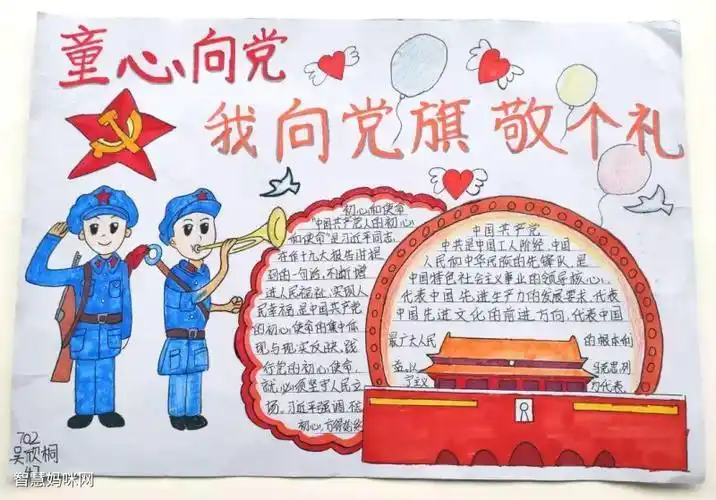 童心向党
我向党旗敬个礼
初心和使命
"中国共产党人的初心
和使命"是习近平同志
在作十九大报告时提
到的一句话,不断增
进人民福祉,实现人
民幸福,是中国共产党
的初心、使命的集中体
现与现实反映,践
行党的初心、使命,
就必须坚守人民立
场。习近平强调
初心,方得始终
中国共产党
中共是中国工人阶级、中国
人民和中华民族的先锋队,是
中国特色社会主义事业的领导核心,
代表中国先进生产力的发展要求,代表
中国先进文化的前进方向,代表中国
最广大人民 的根本利
益,以 马克思列
宁主义 为代表
702
吴欣桐
47
智慧妈咪网